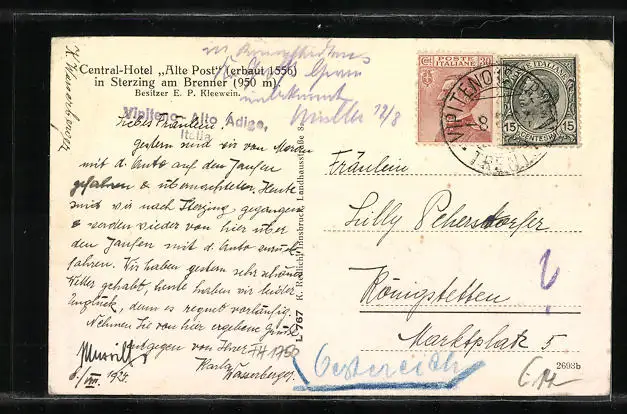 Central-Hotel „Alte Post" (erbaut 1556)
in Sterzing am Brenner (950 m).
Besitzer E. P. Kleewein.
Vipiteno, Alto Adige,
Italia
Liebes Fräulein,
Gestern sind wir von Meran
mit d. Auto auf den Jaufen
gefahren & übernachteten. Heute
sind wir nach Sterzing gegangen
& werden wieder von hier über
den Jaufen mit d. Auto zurück
fahren. Wir haben gestern sehr schönes
Wetter gehabt, heute haben wir leider
Unglück, denn es regnet vorläufig.
Nehmen Sie von hier ergebene Grüße
entgegen von Ihrer
Karla
Wasserberger
1924
unbekannt
Müller 12/8
L 767 K. Redlich, Innsbruck, Landhausstraße
POSTE ITALIANE
30
15
CENTESIMI
15
VIPITENO
TRENTO
Fräulein
Lilly Pehersdorfer
Königstetten
Marktplatz 5
?
Oesterreich
2693b